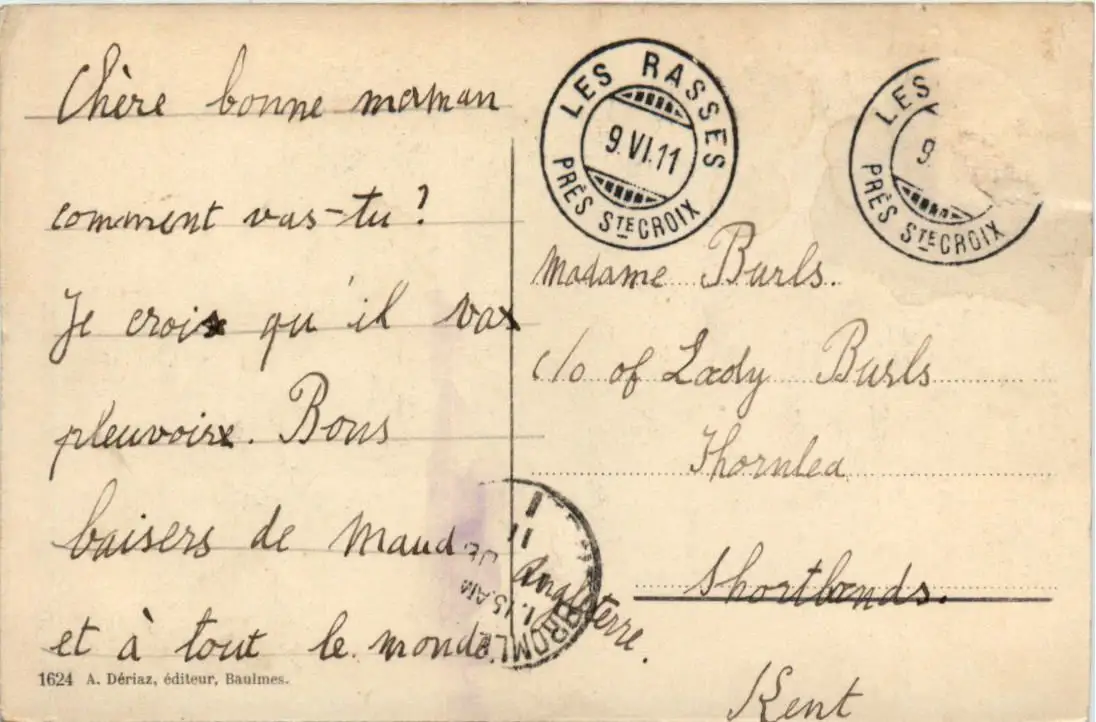 Chère bonne maman
comment vas-tu?
Je crois qu'il vas
pleuvoire. Bons
baisers de Maud
et à tout le monde.
1624 A. Dériaz, éditeur, Baulmes.
LES RASSES
9.VI.11
PRÈS STE CROIX
LES
9
PRÈS STE CROIX
Madame Burls.
c/o of Lady Burls
Thornlea
Shortlands.
Angleterre.
Kent
11
1.15AM
BROMLE